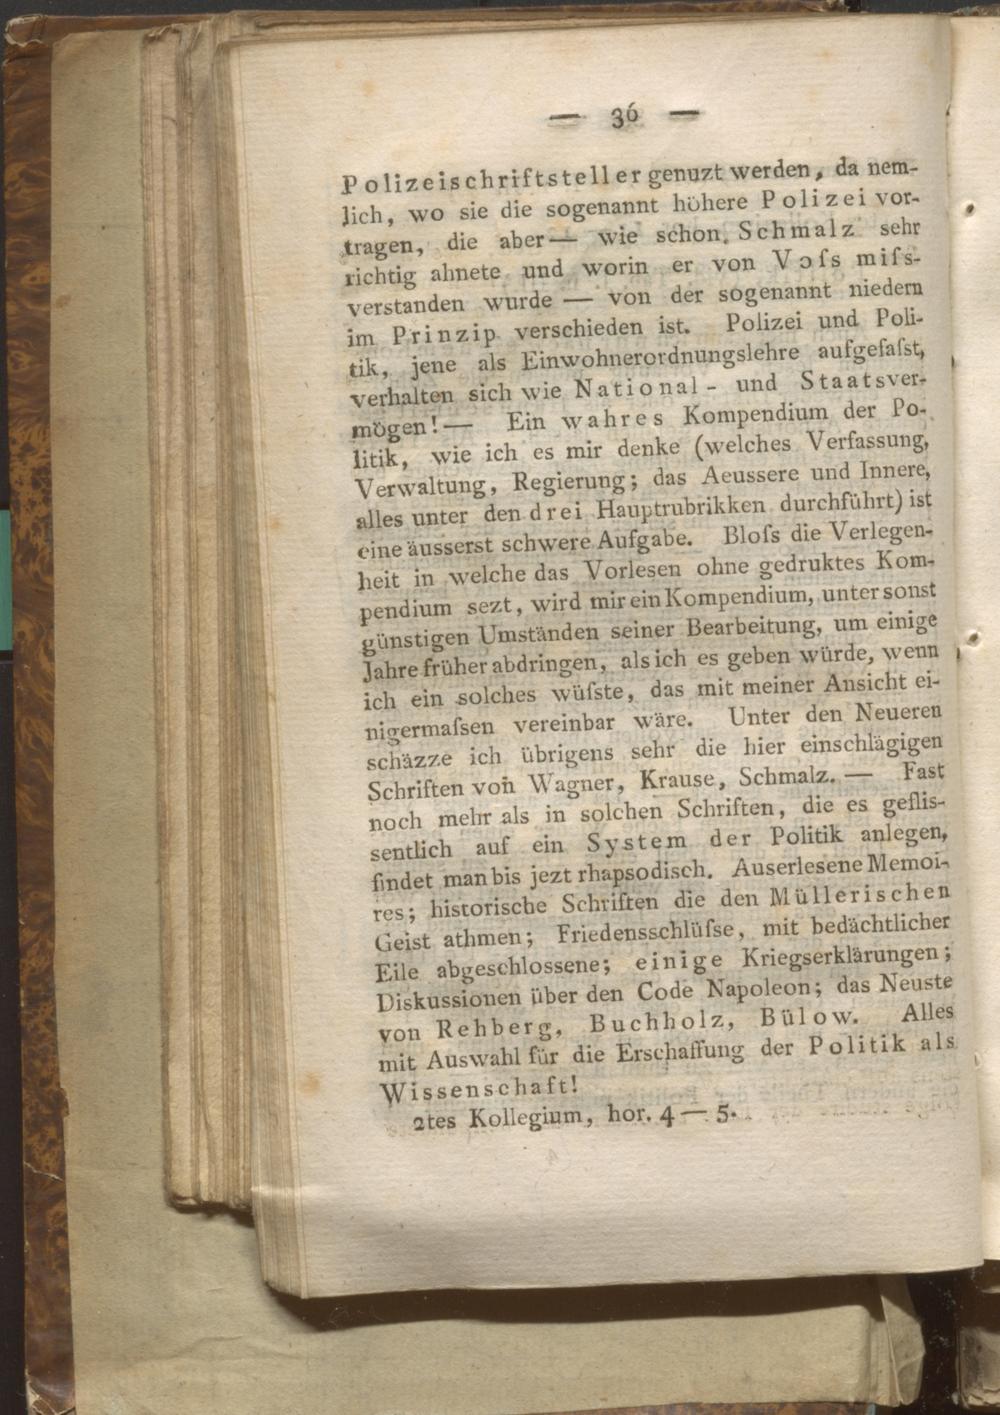 — 36 —
Polizeischriftsteller genuzt werden, da nem-
lich, wo sie die sogenannt höhere Polizei vor-
tragen, die aber — wie schon Schmalz sehr
richtig ahnete und worin er von Voſs miſs-
verstanden wurde — von der sogenannt niedern
im Prinzip verschieden ist. Polizei und Poli-
tik, jene als Einwohnerordnungslehre aufgefaſst,
verhalten sich wie National- und Staatsver-
mögen! — Ein wahres Kompendium der Po-
litik, wie ich es mir denke (welches Verfassung,
Verwaltung, Regierung; das Aeussere und Innere,
alles unter den drei Hauptrubrikken durchführt) ist
eine äusserst schwere Aufgabe. Bloſs die Verlegen-
heit in welche das Vorlesen ohne gedruktes Kom-
pendium sezt, wird mir ein Kompendium, unter sonst
günstigen Umständen seiner Bearbeitung, um einige
Jahre früher abdringen, als ich es geben würde, wenn
ich ein solches wüſste, das mit meiner Ansicht ei-
nigermaſsen vereinbar wäre. Unter den Neueren
schäzze ich übrigens sehr die hier einschlägigen
Schriften von Wagner, Krause, Schmalz. — Fast
noch mehr als in solchen Schriften, die es geflis-
sentlich auf ein System der Politik anlegen,
findet man bis jezt rhapsodisch. Auserlesene Memoi-
res; historische Schriften die den Müllerischen
Geist athmen; Friedensschlüſse, mit bedächtlicher
Eile abgeschlossene; einige Kriegserklärungen;
Diskussionen über den Code Napoleon; das Neuste
von Rehberg, Buchholz, Bülow. Alles
mit Auswahl für die Erschaffung der Politik als
Wissenschaft!
2tes Kollegium, hor. 4 — 5.